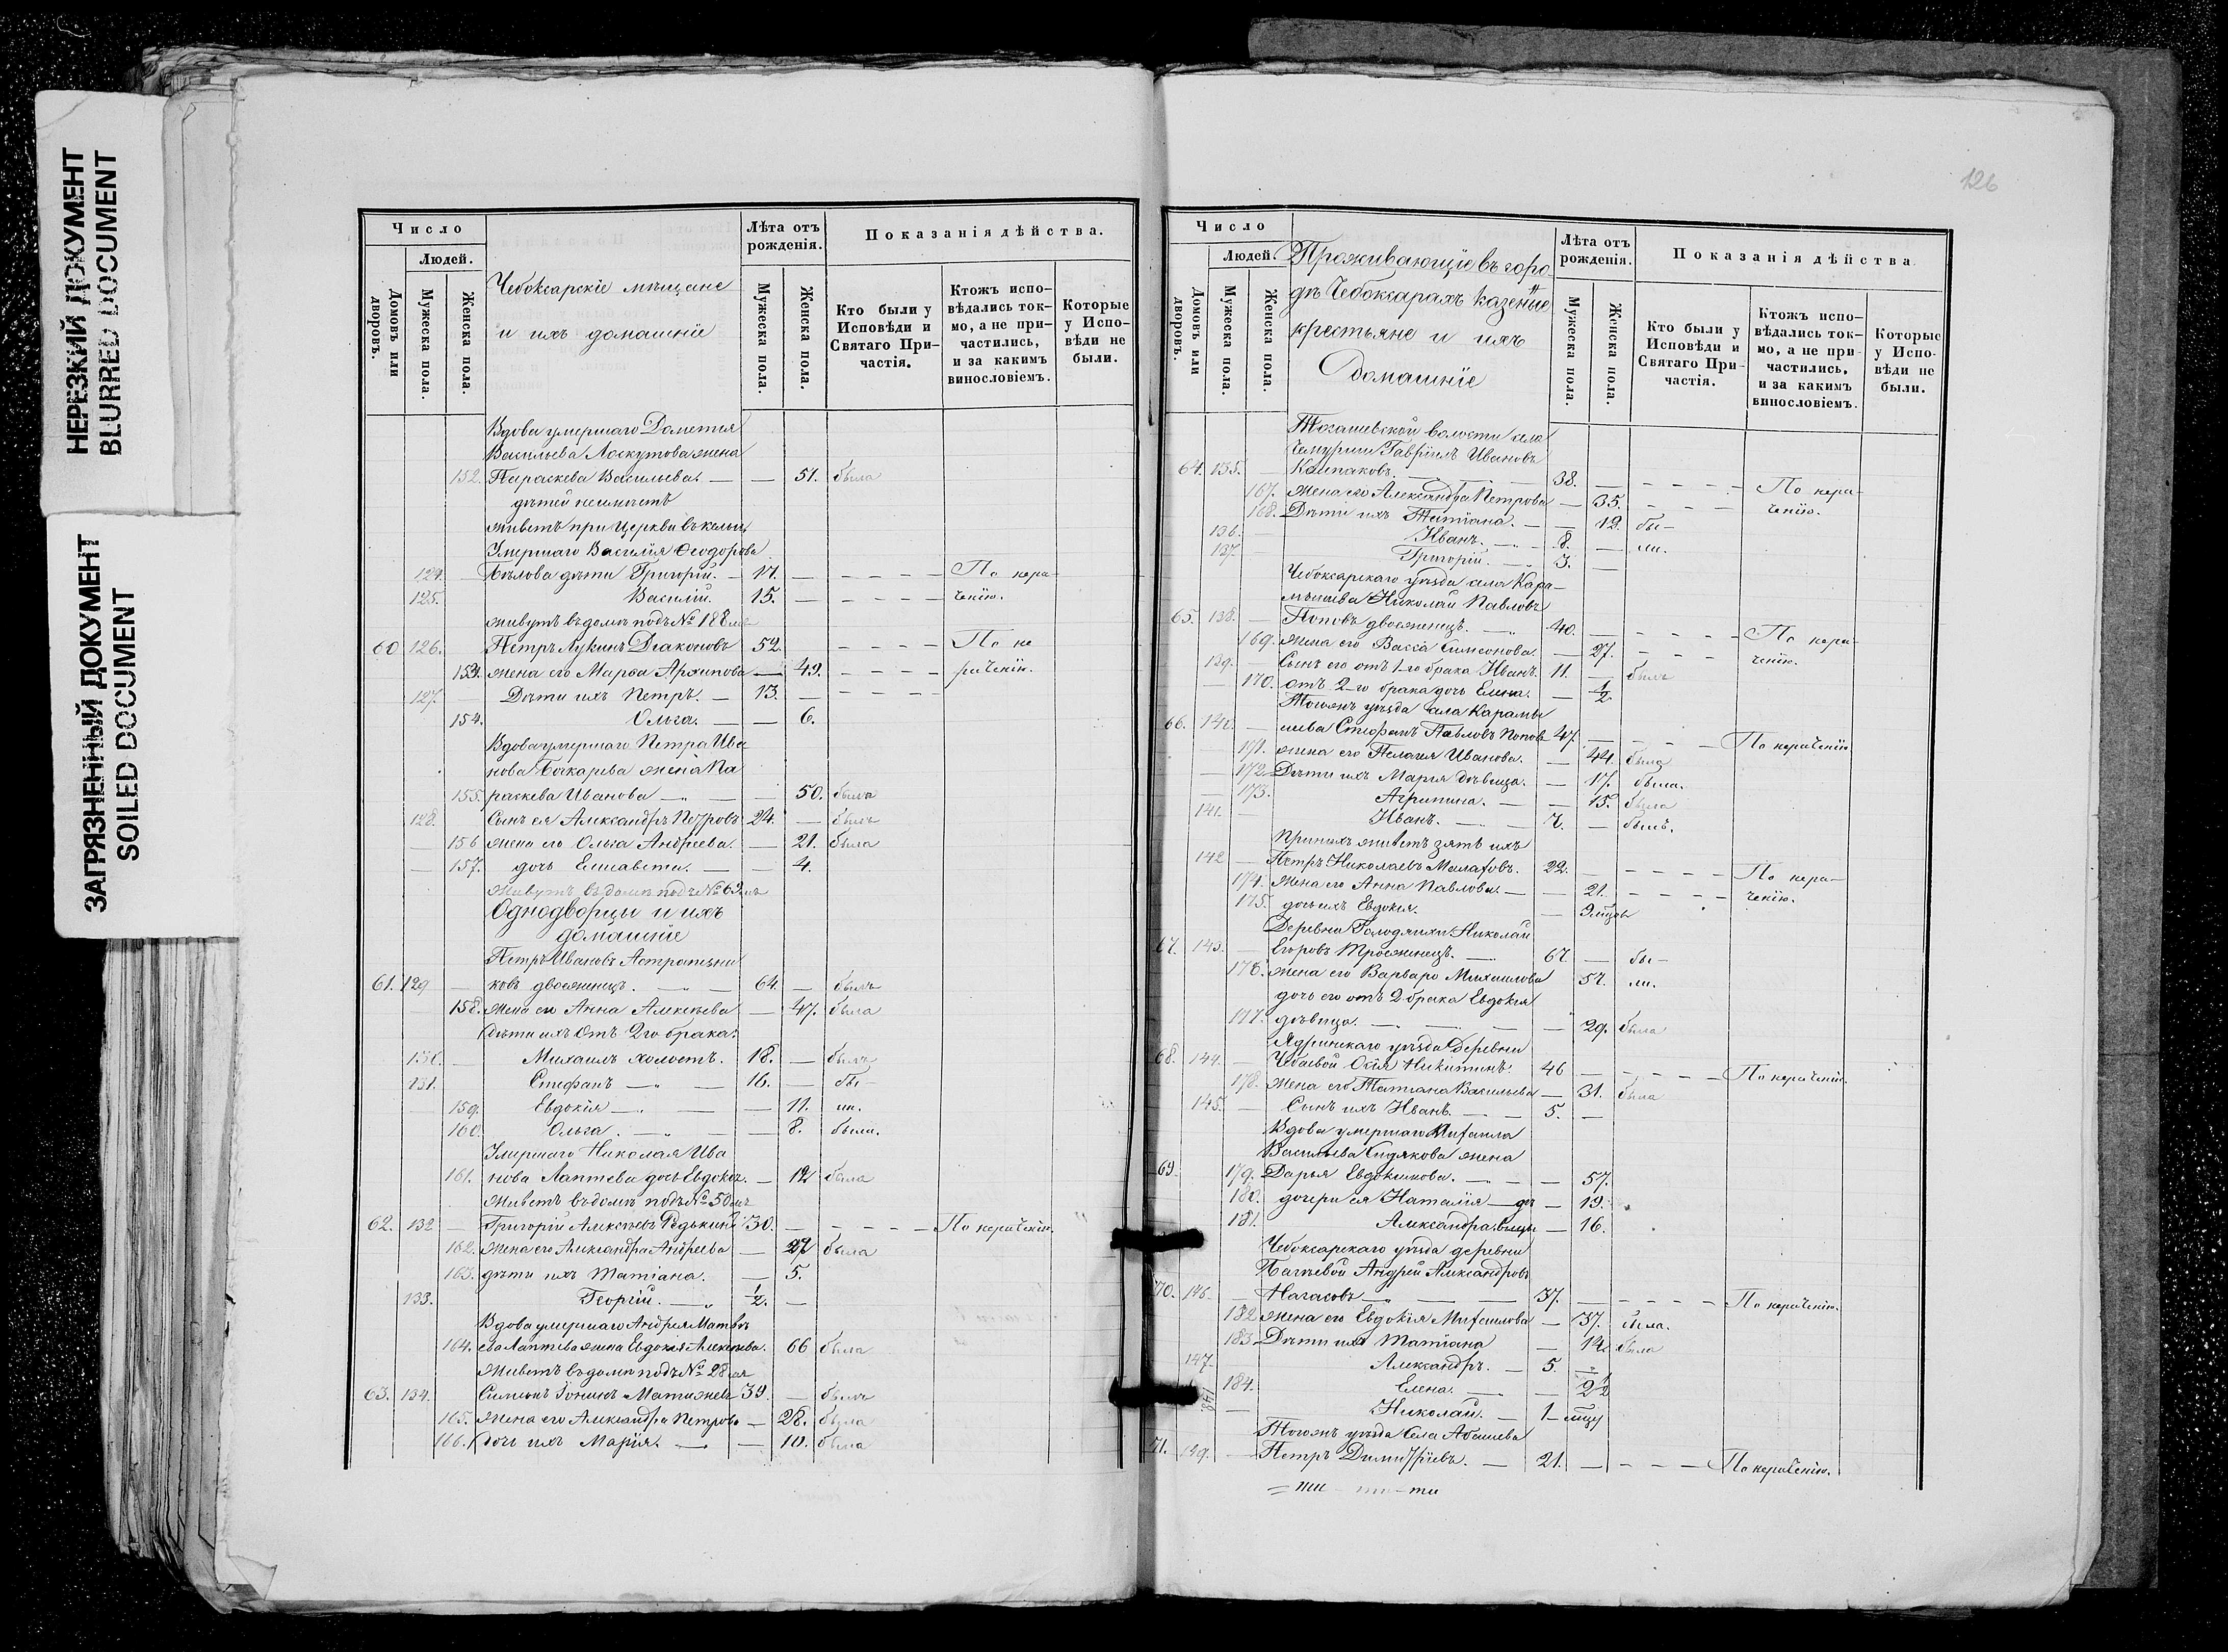 НЕРЕЗКИЙ ДОКУМЕНТ
BLURRED DOCUMENT
ЗАГРЯЗНЕННЫЙ ДОКУМЕНТ
SOILED DOCUMENT
Число
Людей.
Домовъ или дворовъ.
Мужеска пола.
Женска пола.
Чебоксарскіе мѣщане
и ихъ домашніе
Лѣта отъ рожденія.
Мужеска пола.
Женска пола.
Показанія дѣйства.
Кто были у Исповѣди и Святаго Причастія.
Ктожъ исповѣдались токмо, а не причастились, и за какимъ винословіемъ.
Которые у Исповѣди не были.
Вдова умершаго Дометія
Васильева Лоскутова жена
152. Параскева Васильева. — — 51. была
дѣтей неимѣетъ
живетъ при Церкви въ кельи
Умершаго Василія Ѳеодорова
124. — Бѣлова дѣти Григорій. — 17. — — — — — По нера-
125. Василій. 15. — — — — — ченію.
живутъ въ домѣ подъ № 188мъ
60 126. Петръ Лукинъ Діаконовъ 52. — — — — По не
153. жена его Марѳа Архипова — 49. — — — — раченію.
127. — Дѣти ихъ Петръ. — 13. — — — — —
154. Ольга. — — 6.
Вдова умершаго Петра Ива
нова Бочкарева жена Па
155. раскева Иванова — — — 50. была
128. Сынъ ея Александръ Петровъ 24. — былъ
— 156 жена его Ольга Андреева. — 21. была
— 157. дочь Елисавета. — — 4.
Живутъ въ домѣ подъ № 62мъ
Однодворцы и ихъ
домашніе
Петръ Ивановъ Астратѣни
61. 129 — ковъ двоеженецъ. — — 64 — былъ
— 158. жена его Анна Алексѣева — 47. была
дѣти ихъ отъ 2го брака:
130. — Михаилъ холостъ. 18. — былъ
131. Стефанъ — — 16. — бы-
— 159. Евдокія — — — 11. ли.
160. Ольга. — — — 8. была.
Умершаго Николая Ива
161. нова Лаптева дочь Евдокія. — 12 была
Живетъ въ домѣ подъ № 50мъ
62. 132 — Григорій Алексѣевъ Редькинъ 30. — — — — — По нераченію.
162. Жена его Александра Андреева — 27 была
163. дѣти ихъ Татіана. — 5.
133. Георгій. — 1/2. —
Вдова умершаго Андрея Матвѣ
164. ева Лаптева жена Евдокія Алексѣева. 66 была
Живетъ въ домѣ подъ № 28мъ
63. 134. Симеонъ 39. — былъ
165. Жена его Александра Петрова — 28. была
166. Дочь ихъ Марія. — — 10. была
126
Число
Людей.
Домовъ или дворовъ.
Мужеска пола.
Женска пола.
Проживающіе въ горо
дѣ Чебоксарахъ казенные
крестьяне и ихъ
домашніе
Лѣта отъ рожденія.
Мужеска пола.
Женска пола.
Показанія дѣйства
Кто были у Исповѣди и Святаго Причастія.
Ктожъ исповѣдались токмо, а не причастились, и за какимъ винословіемъ.
Которые у Исповѣди не были.
Тогашевской волости села
Гавріилъ Ивановъ
64. 135. — Колпаковъ. — — 38. — — — — — По нера-
167. Жена его Александра Петрова — 35. — — — ченію.
168. Дѣти ихъ Татіана. — — 12. бы-
136. — Иванъ. — 8. — ли.
137. — Григорій. — 3. —
Чебоксарскаго уѣзда села Кара-
мышева Николай Павловъ
65. 138. — Поповъ двоеженецъ. — 40. — — — — — По нера-
169. Жена его Васса Симеонова. — 27. — — — ченію.
139. — Сынъ его отъ 1-го брака Иванъ. 11. — былъ
170. отъ 2-го брака дочь Елена. — 1/2
Тогожъ уѣзда села Карамы
66. 140. — шева Стефанъ Павловъ Поповъ 47. — — — — По нераченію.
171. жена его Пелагія Иванова. — 44. была
— 172. Дѣти ихъ Марія дѣвица. — 17. была.
— 173. Агрипина. — — 15. была
141. — Иванъ. — — 7. — былъ.
При нихъ живетъ зять ихъ
142 — Петръ Николаевъ 22. — — — — — По нера-
174. Жена его Анна Павлова. — — 21. — — — ченію.
175. дочь ихъ Евдокія. — 9 мѣцовъ
Деревни Голодяихи Николай
67. 143. — Егоровъ троеженецъ. — 67. — бы-
176. жена его Варвара Михаилова 57. ли.
дочь его отъ 2 брака Евдокія
177. дѣвица. — — — — 29. была
Ядринскаго уѣзда Деревни
68. 144. — Осія Никитинъ. 46 — — — — — По нераченію.
178. Жена его Татіана Васильева — 31. была
145. — Сынъ ихъ Иванъ. — — 5. —
Вдова умершаго Михаила
Васильева жена
69. 179. Дарья Евдокимова. — — — 57.
180. дочери ея Наталія — дѣ — 19.
181. Александра. вицы — 16.
Чебоксарскаго уѣзда деревни
Андрей Александровъ
70. 146. — Нагасовъ — — — 37. — — — — — По нераченію.
182 Жена его Евдокія Михаилова — 37. была.
183. Дѣти ихъ Татіана — 12 была
147. — Александръ. — 5. —
184. Елена. — — 2 1/2
148. — Николай. — 1 — мѣцъ
Тогожъ уѣзда села Абашева
71. 149. — Петръ Димитріевъ. — 21. — — — — — По нераченію.
= ти - ти - ти